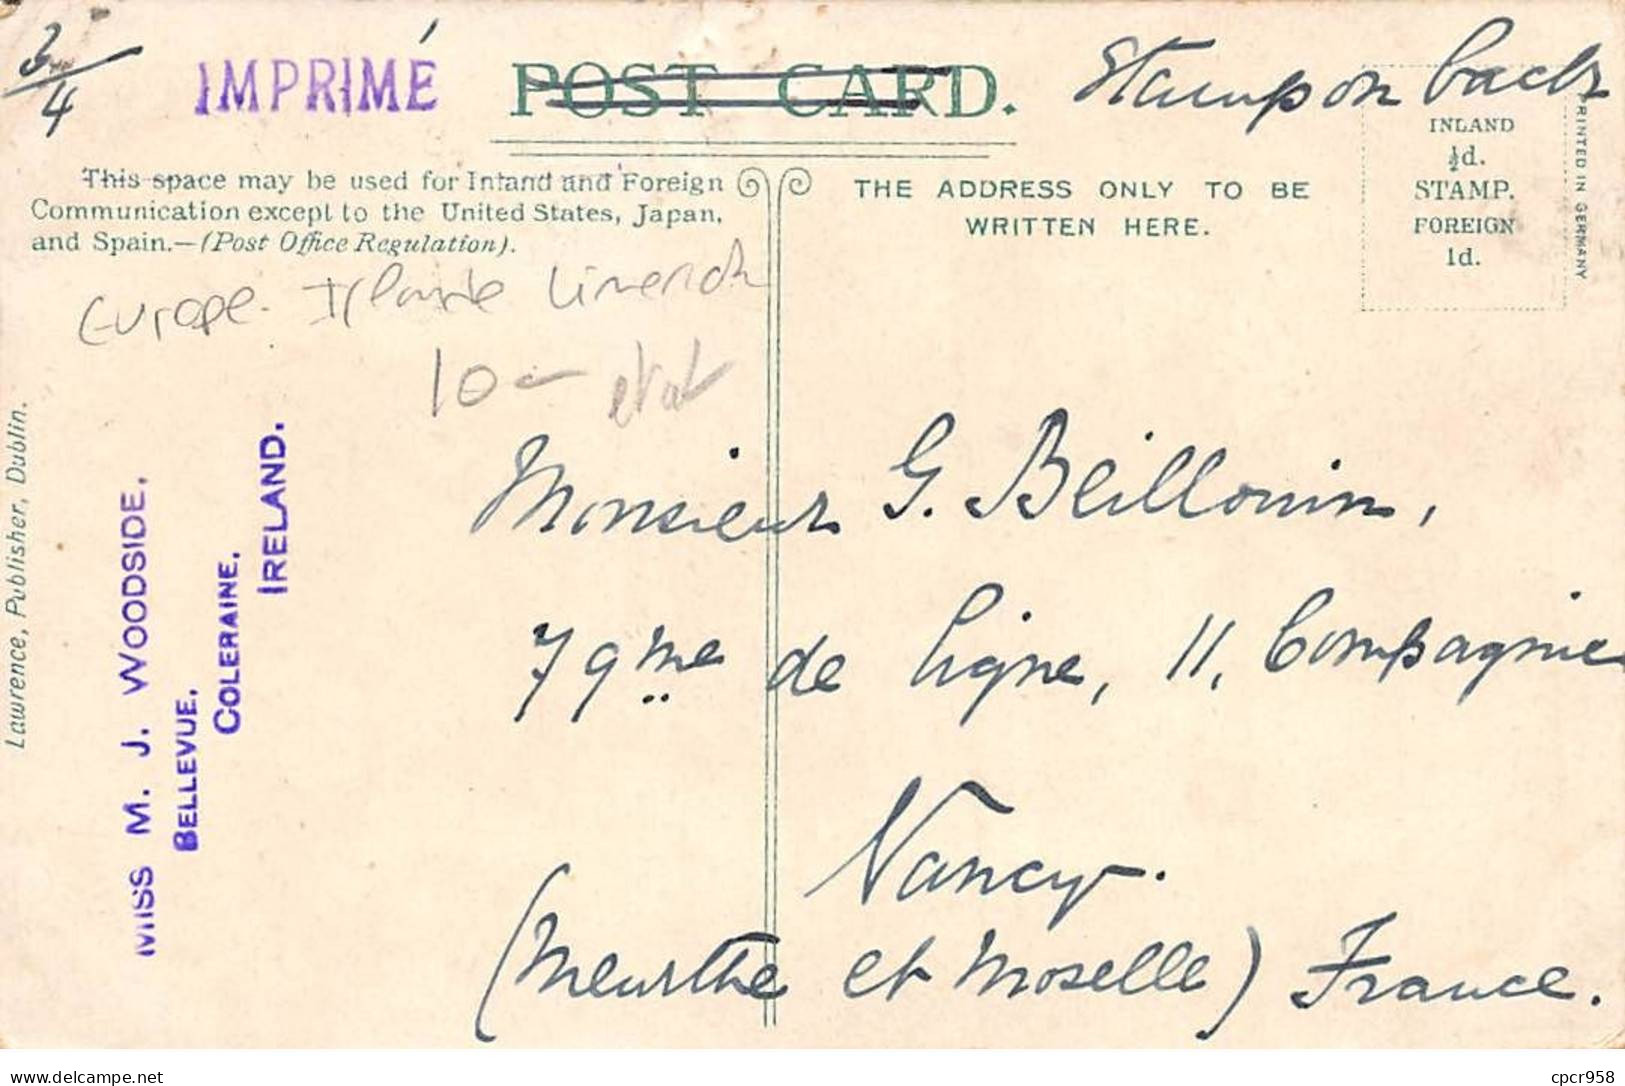 3/4
IMPRIMÉ
POST CARD.
Stamp on back
This space may be used for Inland and Foreign
Communication except to the United States, Japan,
and Spain.—(Post Office Regulation).
THE ADDRESS ONLY TO BE
WRITTEN HERE.
INLAND
½d.
STAMP.
FOREIGN
1d.
PRINTED IN GERMANY
Europe. Irlande Limerick
10-
état
Lawrence, Publisher, Dublin.
MISS M. J. WOODSIDE,
BELLEVUE,
COLERAINE,
IRELAND.
Monsieur G. Beillouin,
79me de Ligne, 11, Compagnie
Nancy.
(Meurthe et Moselle) France.
delcampe.net
cpcr958